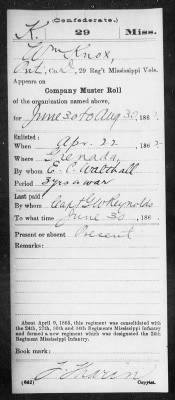 (Confederate.)
K. 29 Miss.
Wm Knox,
Pvt., Co. K, 29 Reg't Mississippi Vols.
Appears on
Company Muster Roll
of the organization named above,
for June 30 to Aug 30, 186
Enlisted:
When Apr. 22, 186
Where Grenada,
By whom E. C. Walthall
Period 3 yrs or war
Last paid:
By whom Capt G W Reynolds
To what time June 30, 186
Present or absent Present
Remarks:
About April 9, 1865, this regiment was consolidated with
the 24th, 27th, 30th and 34th Regiments Mississippi Infantry
and formed a new regiment which was designated the 24th
Regiment Mississippi Infantry.
Book mark:
(642) Copyist.